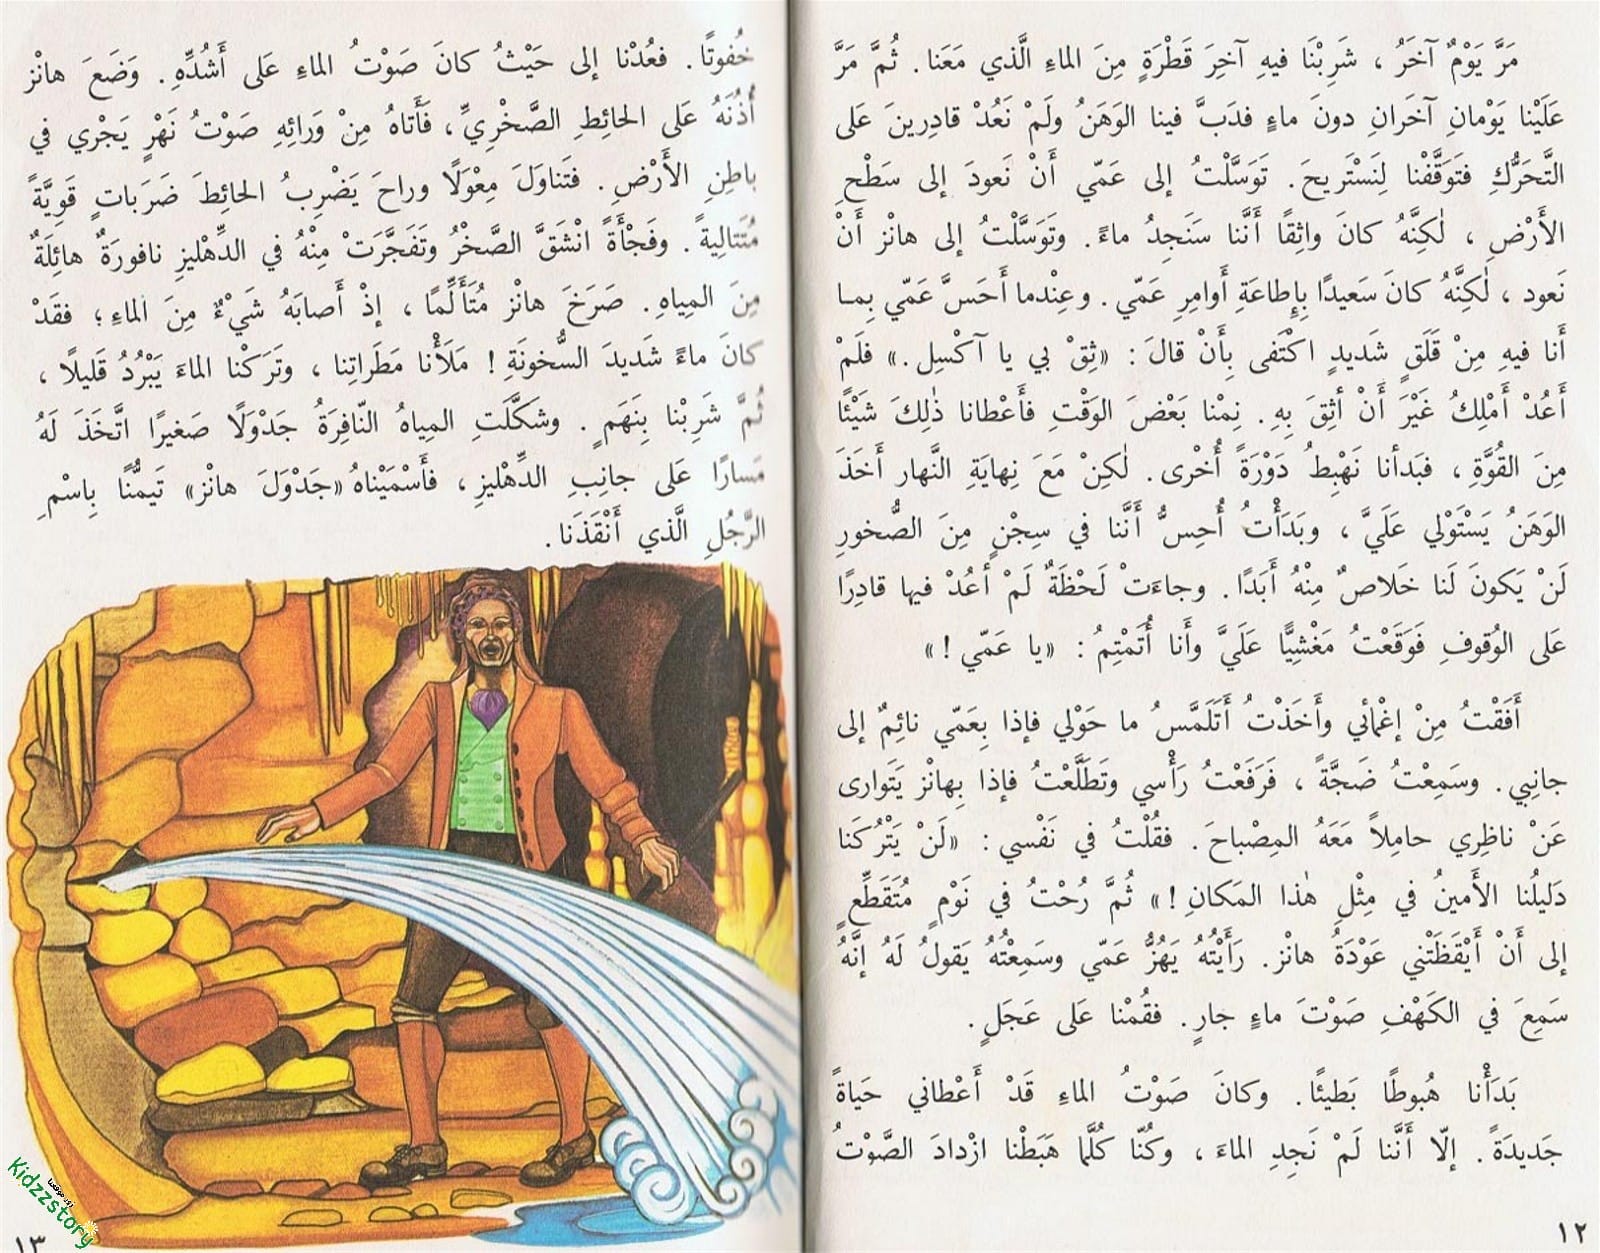 مَرَّ يَوْمٌ آخَرُ ، شَرِبْنَا فيهِ آخِرَ قَطْرَةٍ مِنَ الماءِ الَّذي مَعَنا . ثُمَّ مَرَّ
عَلَيْنا يَوْمانِ آخَرانِ دونَ ماءٍ فدَبَّ فينا الوَهَنُ ولَمْ نَعُدْ قادِرينَ عَلى
التَّحَرُّكِ فتَوَقَّفْنا لِنَسْتَريحَ. تَوَسَّلْتُ إلى عَمّي أَنْ نَعودَ إلى سَطْحِ
الأَرْضِ ، لٰكِنَّهُ كانَ واثِقًا أَنَّنا سَنَجِدُ ماءً. وتَوَسَّلْتُ إلى هانْز أَنْ
نَعود ، لٰكِنَّهُ كانَ سَعيدًا بِإِطاعَةِ أَوامِرِ عَمّي . وعِنْدما أَحَسَّ عَمّي بِمـا
أَنا فيهِ مِنْ قَلَقٍ شَديدٍ اكْتَفى بِأَنْ قالَ : «ثِقْ بي يا آكْسِل .» فلَمْ
أَعُدْ أَمْلِكُ غَيْرَ أَنْ أَثِقَ بِهِ. نِمْنا بَعْضَ الوَقْتِ فأَعْطانا ذٰلِكَ شَيْئًا
مِنَ القُوَّةِ ، فبَدأنا نَهْبِطُ دَوْرَةً أُخْرى. لٰكِنْ مَعَ نِهايَةِ النَّهار أَخَذَ
الوَهَنُ يَسْتَوْلي عَلَيَّ ، وبَدَأْتُ أُحِسُّ أَنَّنا في سِجْنٍ مِنَ الصُّخورِ
لَنْ يَكونَ لَنا خَلاصٌ مِنْهُ أَبَدًا . وجاءَتْ لَحْظَةٌ لَمْ أَعُدْ فيها قادِرًا
عَلى الوُقوفِ فَوَقَعْتُ مَغْشِيًّا عَلَيَّ وأَنا أُتَمْتِمُ : «يا عَمّي !»
أَفَقْتُ مِنْ إغْمائي وأَخَذْتُ أَتَلَمَّسُ ما حَوْلي فإذا بِعَمّي نائِمٌ إلى
جانِبي. وسَمِعْتُ ضَجَّةً ، فَرَفَعْتُ رَأْسي وتَطَلَّعْتُ فإذا بِهانْز يَتَوارى
عَنْ ناظِري حامِلاً مَعَهُ المِصْباحَ . فقُلْتُ في نَفْسي : «لَنْ يَتْرُكَنا
دَليلُنا الأَمينُ في مِثْلِ هٰذا المَكانِ !» ثُمَّ رُحْتُ في نَوْمٍ مُتَقَطِّعٍ
إلى أَنْ أَيْقَظَتْني عَوْدَةُ هانْز. رَأَيْتُهُ يَهُزُّ عَمّي وسَمِعْتُهُ يَقولُ لَهُ إنَّهُ
سَمِعَ في الكَهْفِ صَوْتَ ماءٍ جارٍ. فقُمْنا عَلى عَجَلٍ.
بَدَأْنا هُبوطًا بَطيئًا. وكانَ صَوْتُ الماءِ قَدْ أَعْطاني حَياةً
جَديدَةً . إلّا أَنَّنا لَمْ نَجِدِ الماءَ ، وكُنّا كُلَّما هَبَطْنا ازْدادَ الصَّوْتُ
١٢
خُفوتًا. فعُدْنا إلى حَيْثُ كانَ صَوْتُ الماءِ عَلى أَشُدِّهِ. وَضَعَ هانْز
أُذُنَهُ عَلى الحائِطِ الصَّخْرِيِّ، فَأَتاهُ مِنْ وَرائِهِ صَوْتُ نَهْرٍ يَجْري في
باطِنِ الأَرْضِ. فتَناوَلَ مِعْوَلًا وراحَ يَضْرِبُ الحائِطَ ضَرَباتٍ قَوِيَّةً
مُتَتالِيةً. وفَجْأَةً انْشَقَّ الصَّخْرُ وتَفَجَّرَتْ مِنْهُ في الدِّهْليزِ نافورَةٌ هائِلَةٌ
مِنَ المِياهِ. صَرَخَ هانْز مُتَأَلِّمًا ، إذْ أَصابَهُ شَيْءٌ مِنَ الماءِ ؛ فقَدْ
كانَ ماءً شَديدَ السُّخونَةِ ! مَلَأْنا مَطَراتِنا ، وتَرَكْنا الماءَ يَبْرُدُ قَليلًا ،
ثُمَّ شَرِبْنا بِنَهَمٍ . وشَكَّلَتِ المِياهُ النّافِرَةُ جَدْوَلًا صَغيرًا اتَّخَذَ لَهُ
مَسارًا عَلى جانِبِ الدِّهْليزِ ، فَأَسْمَيْناهُ «جَدْوَلَ هانْز» تَيمُّنًا بِاسْمِ
الرَّجُلِ الَّذي أَنْقَذَنا.
Kidzzstory
١٣